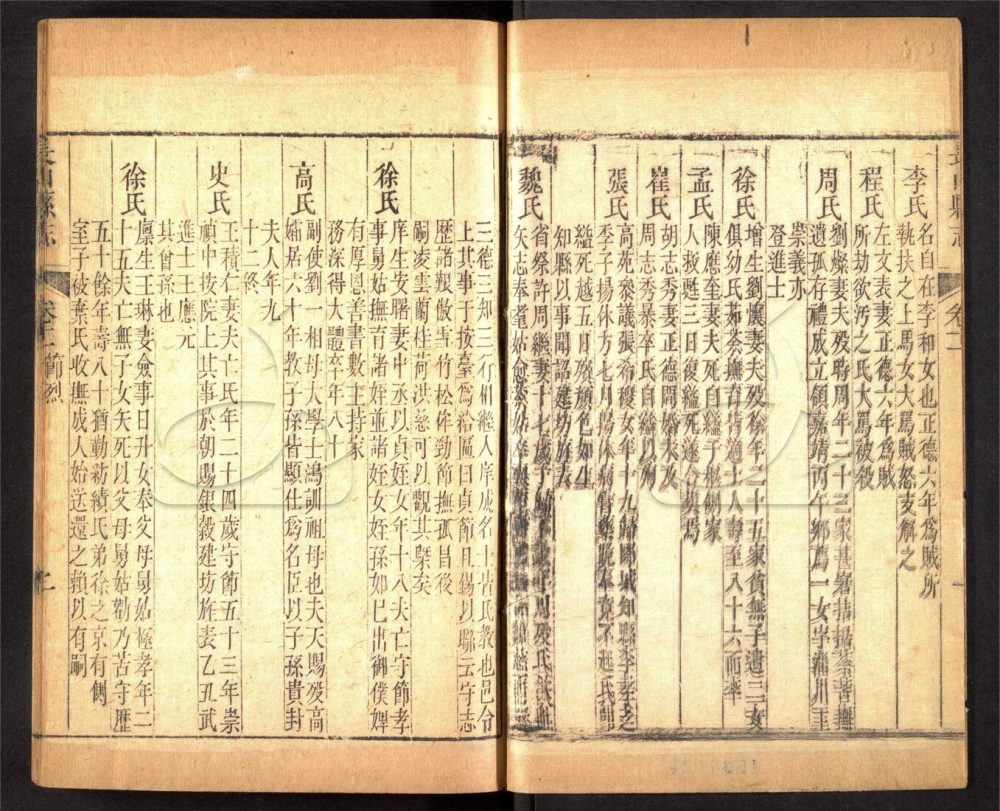 李氏
名自在李和女也正德六年爲賊所
執扶之上馬女大罵賊怒支解之
程氏
左文表妻正德六年爲賊
所劫欲汚之氏大罵被殺
周氏
劉燦妻夫歿時周年二十三家甚窘拮据茶苦撫
遺孤存禮成立領嘉靖丙午鄉薦一女字淄川王
崇義亦
登進士
徐氏
增生劉懷妻夫歿徐年二十五家貧無子遺三女
俱幼氏如荼撫育皆適士人壽至八十六而卒
孟氏
陳應奎妻夫死自縊于柩側家
人救甦三日復縊死遂合塟焉
崔氏
胡志秀妻正德間未婚夫及
周志秀暴卒氏自縊以殉
張氏
高苑叅議張 女年十九歸鄒城知縣李孝之
季子子揚休方七月揚休病
縊死越五日殯顔色如生
知縣以事聞詔建坊旌表
魏氏
省祭許周繼妻十七歲
矢志奉耄姑
三德三知三行相繼入庠成名士皆氏教也邑令
上其事于按臺爲給匾曰貞節且錫以聯云守志
歷諸艱傲雪竹松侔勁節撫孤昌後
嗣凌雲蘭桂荷洪慈可以觀其槩矣
徐氏
庠生安曙妻中丞以貞姪女年十八夫亡守節孝
事舅姑撫育諸姪並諸姪女姪孫如己出御僕婢
有厚恩善書數主持家
務深得大體卒年八十
高氏
副使劉一相母大學士鴻訓祖母也夫天賜歿高
孀居六十年教子孫皆顯仕爲名臣以子孫貴封
夫人年九
十二終
史氏
王積仁妻夫亡氏年二十四歲守節五十三年崇
禎中按院上其事於朝賜銀穀建坊旌表乙丑武
進士王應元
其曾孫也
徐氏
廪生王琳妻僉事日升女奉父母舅姑極孝年二
十五夫亡無子女矢死以父母舅姑勸乃苦守歷
五十餘年壽八十猶勤紡績氏弟徐之京有側
室子被棄氏收撫成人始送還之賴以有嗣